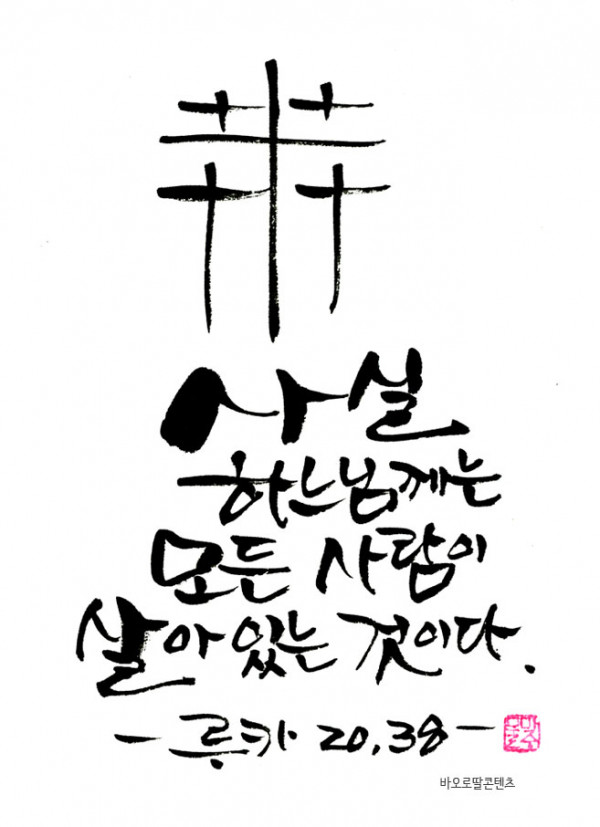 사실
하느님께는
모든 사람이
살아 있는 것이다.
- 루카 20,38 -
바오로딸콘텐츠